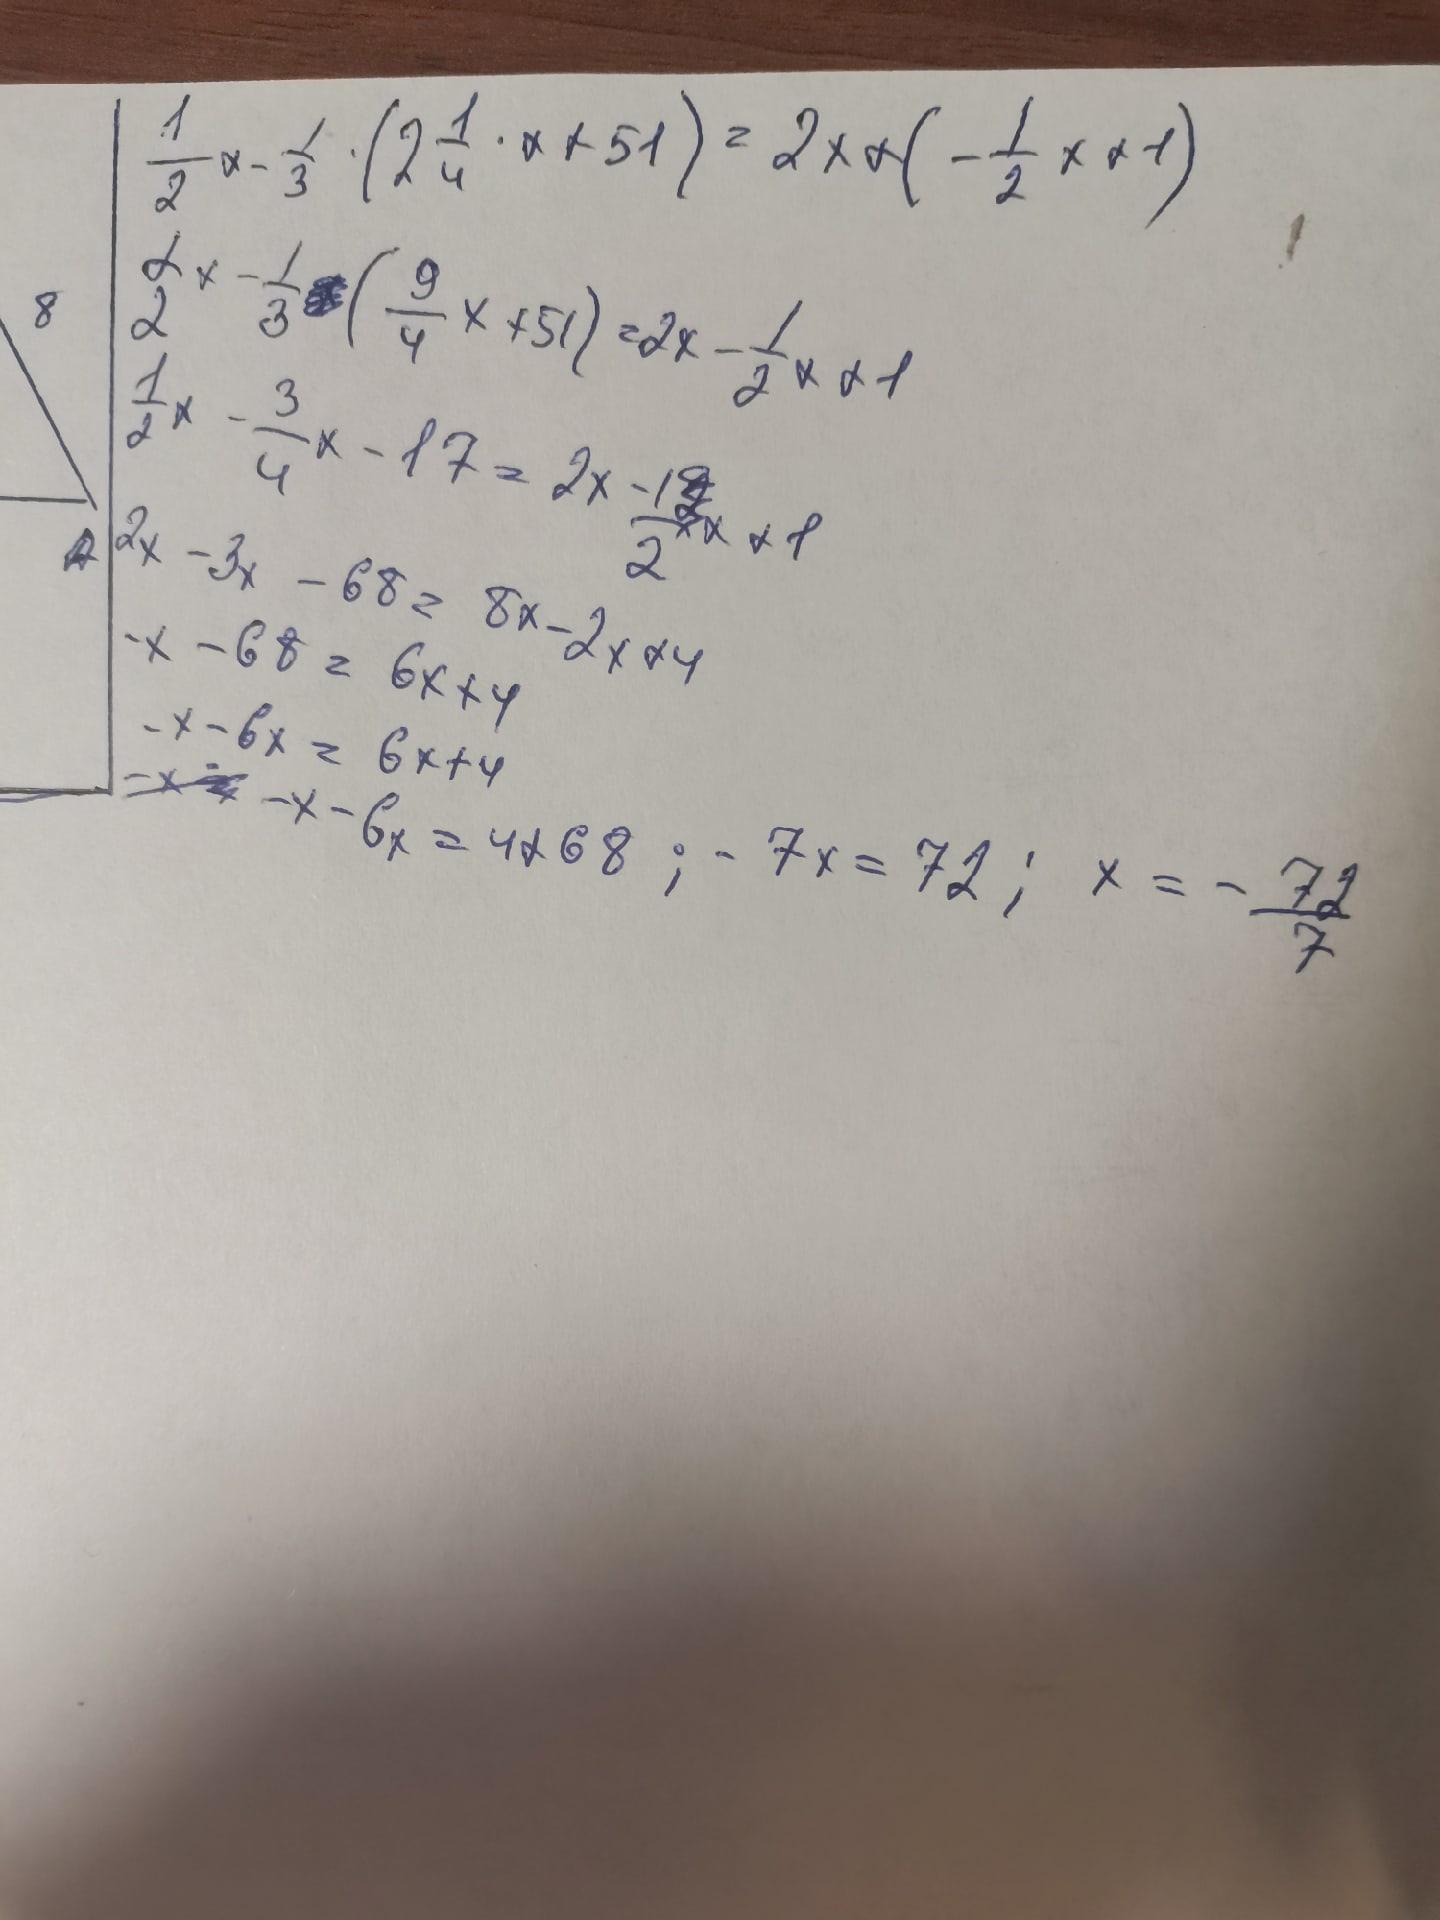 8
A
1/2 x - 1/3 · (2 1/4 · x + 51) = 2x + (- 1/2 x + 1)
1/2 x - 1/3 (9/4 x + 51) = 2x - 1/2 x + 1
1/2 x - 3/4 x - 17 = 2x - 1/2 x + 1
2x - 3x - 68 = 8x - 2x + 4
-x - 68 = 6x + 4
-x - 6x = 6x + 4
-x - 6x = 4 + 68 ; - 7x = 72 ; x = - 72/7